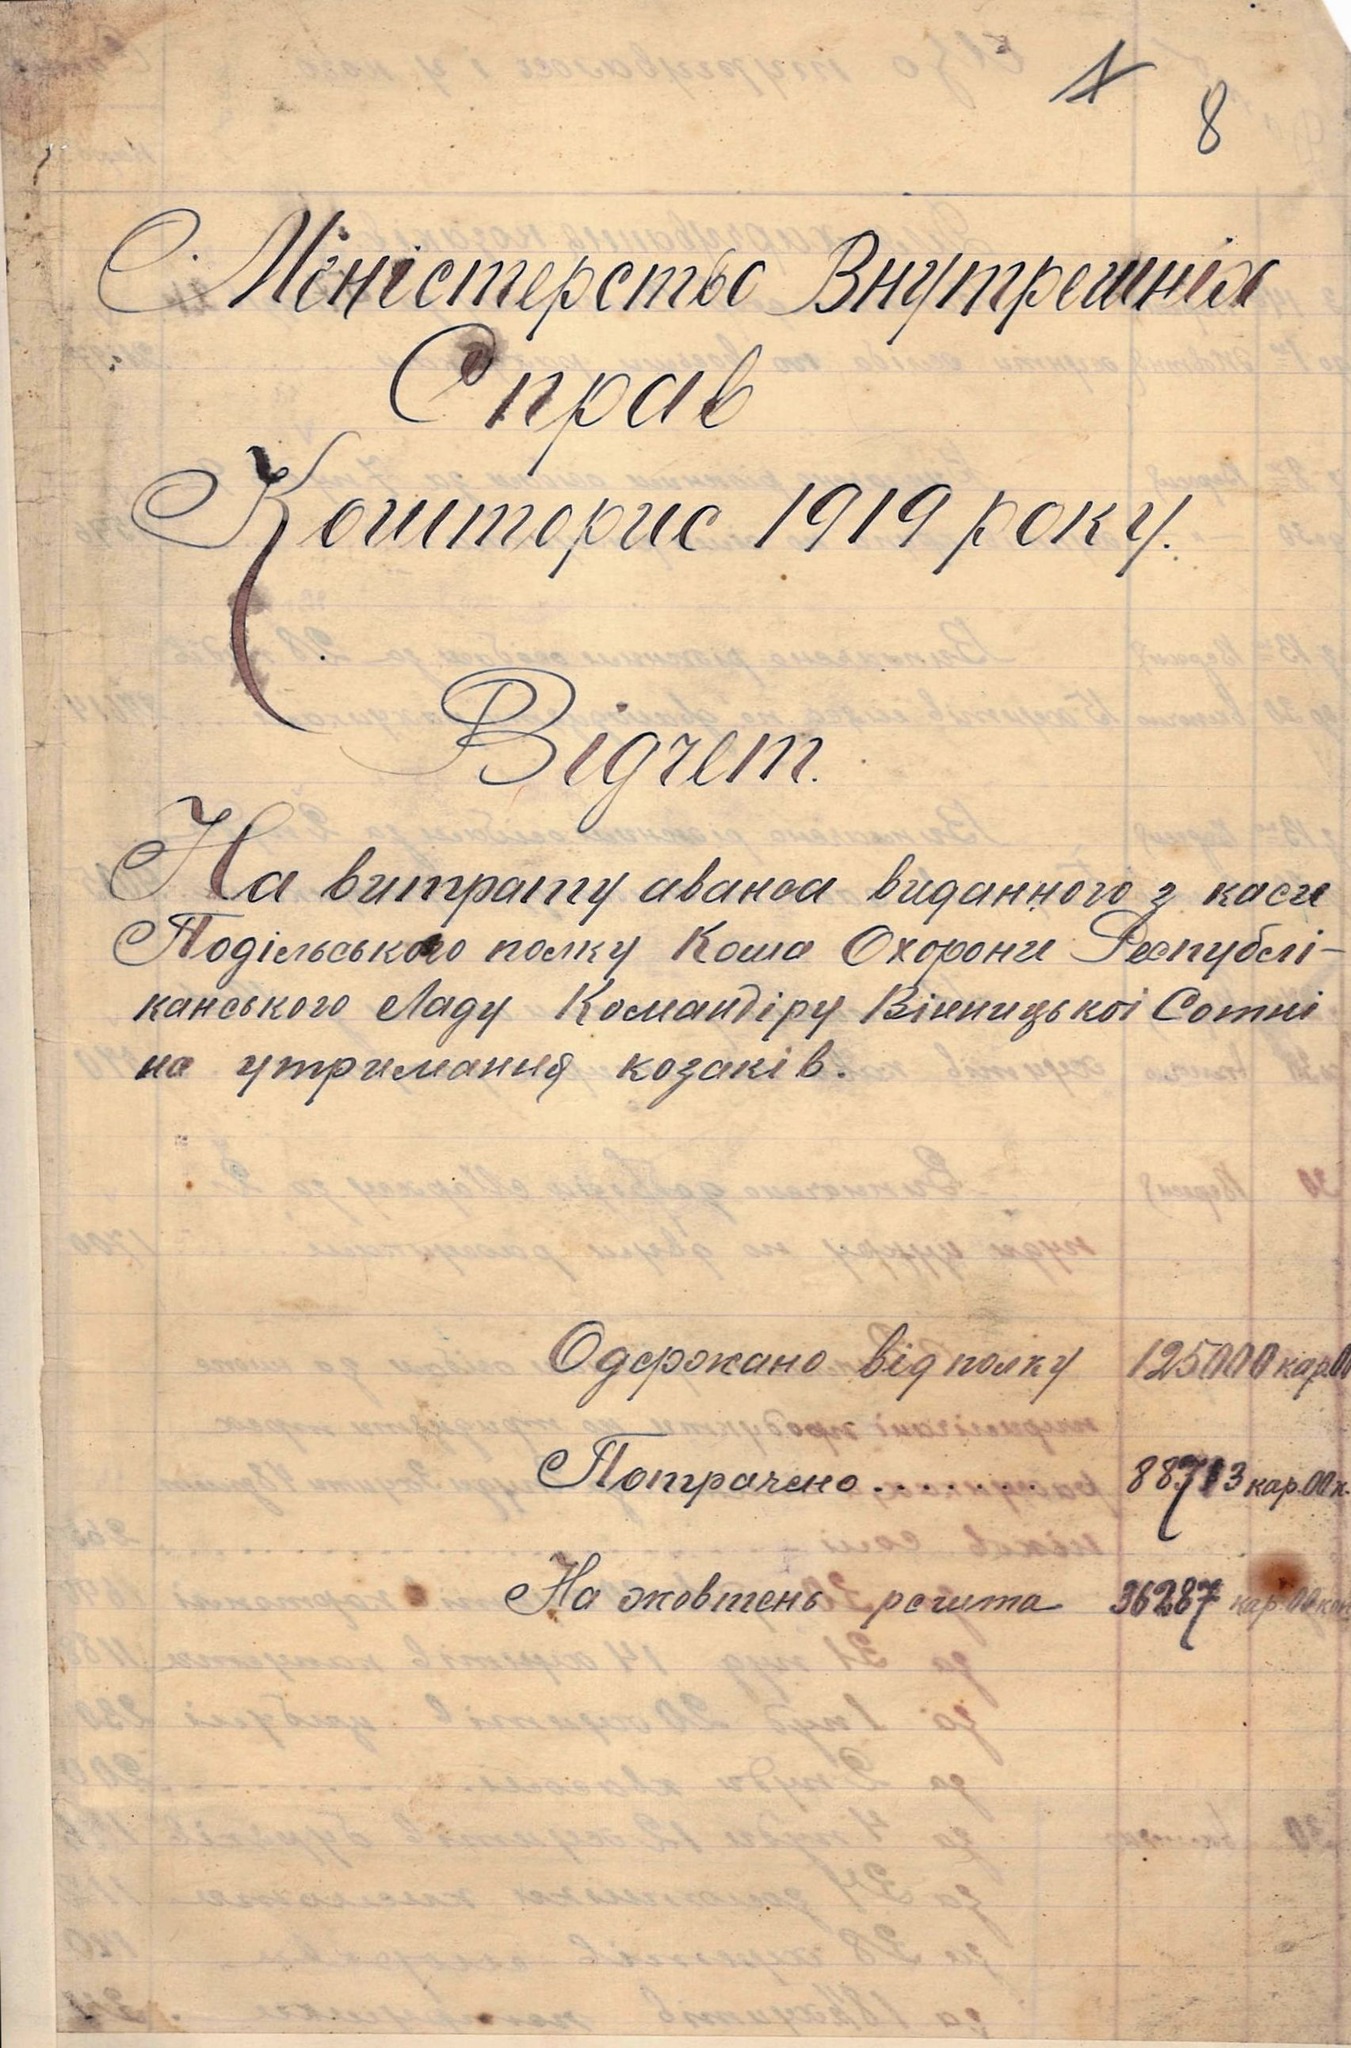 8
Міністерство Внутрешніх
Справ
Кошторис 1919 року.
Відчет.
На витрату аванса виданного з каси
Подільського полку Коша Охорони Републі-
канського Ладу Командіру Вінницькоі Сотні
на утримання козаків.
Одержано від полку 125000 кар. 00
Потрачено........ 88713 кар. 00 к.
На жовтень решта 36287 кар. 00 коп